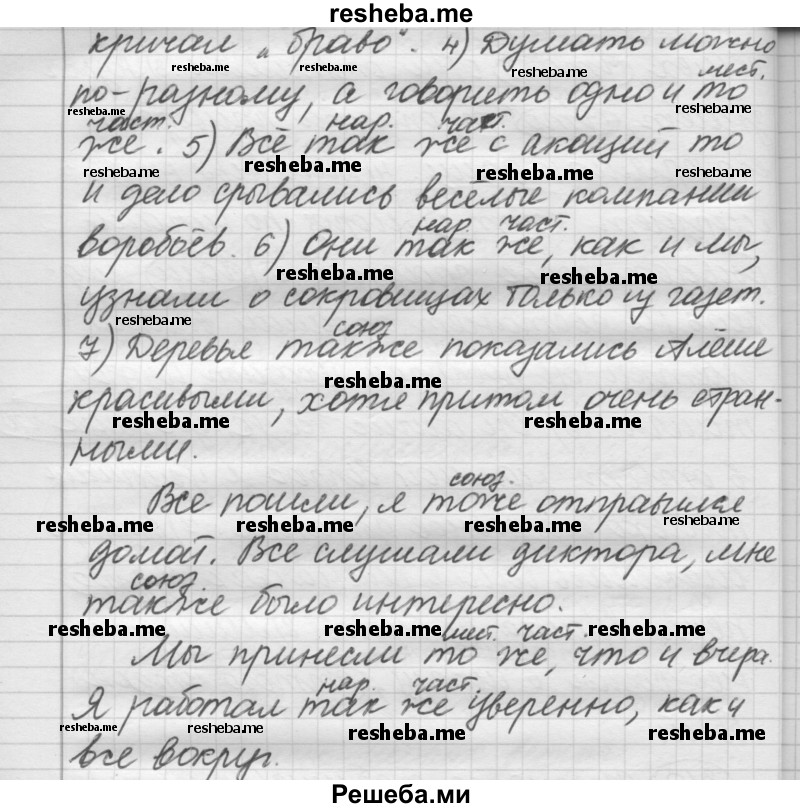 resheba.me
кричал „браво“. 4) Думать можно
resheba.me resheba.me resheba.me
мест.
по-разному, а говорить одно и то
resheba.me resheba.me
част. нар. част.
же. 5) Всё так же с акаций то
resheba.me resheba.me resheba.me resheba.me
и дело срывались весёлые компании
нар. част.
воробьёв. 6) Они так же, как и мы,
resheba.me resheba.me
узнали о сокровищах только из газет.
resheba.me
союз
7) Деревья также показались Алёше
resheba.me
красивыми, хотя притом очень стран-
resheba.me resheba.me resheba.me
ными.
союз.
Все пошли, я тоже отправился
resheba.me resheba.me resheba.me resheba.me
домой. Все слушали диктора, мне
союз.
также было интересно.
resheba.me resheba.me resheba.me
мест. част.
Мы принесли то же, что и вчера.
нар. част.
Я работал так же уверенно, как и
resheba.me resheba.me resheba.me resheba.me
все вокруг.
Решеба.ми